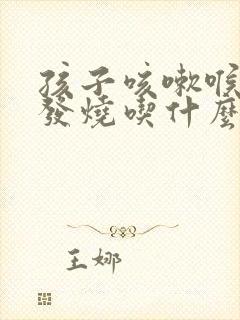 孩子咳嗽喉
發燒喫什麼
王娜